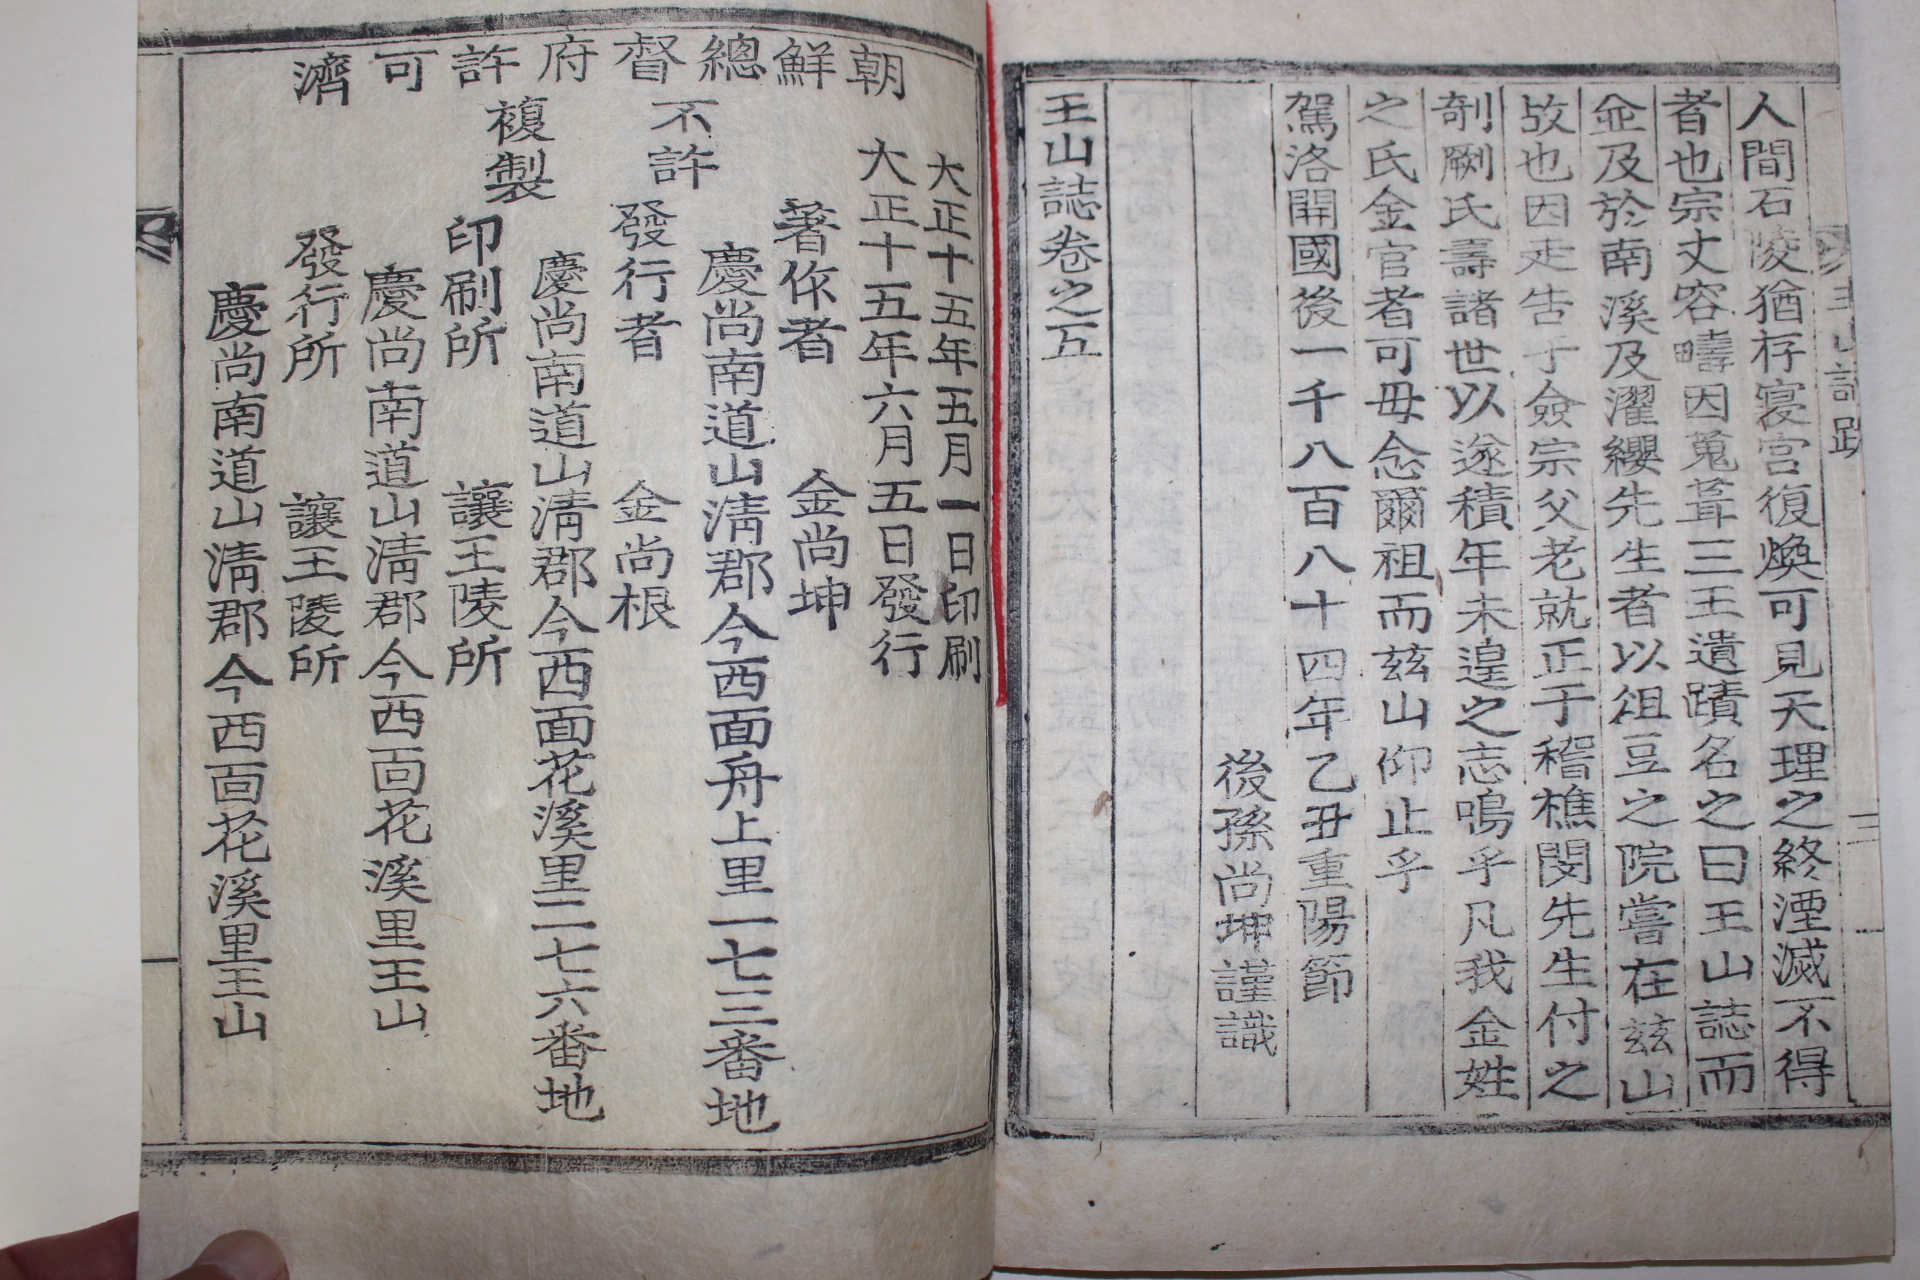 人間石陵猶存寢宮復煥可見天理之終湮滅不得
者也宗丈容疇因蒐葺三王遺蹟名之曰王山誌而
並及於南溪及濯纓先生者以俎豆之院嘗在玆山
故也因走告于僉宗父老就正于稽樵閔先生付之
剞劂氏壽諸世以遂積年未遑之志嗚乎凡我金姓
之氏金官者可毋念爾祖而玆山仰止乎
駕洛開國後一千八百八十四年乙丑重陽節
後孫尚坤謹識
王山誌卷之五
王山誌跋
二
朝鮮總督府許可濟
大正十五年五月一日印刷
大正十五年六月五日發行
不許
複製
著作者 金尚坤
慶尚南道山淸郡今西面舟上里一七三番地
發行者 金尚根
慶尚南道山淸郡今西面花溪里二七六番地
印刷所 讓王陵所
慶尚南道山淸郡今西面花溪里王山
發行所 讓王陵所
慶尚南道山淸郡今西面花溪里王山